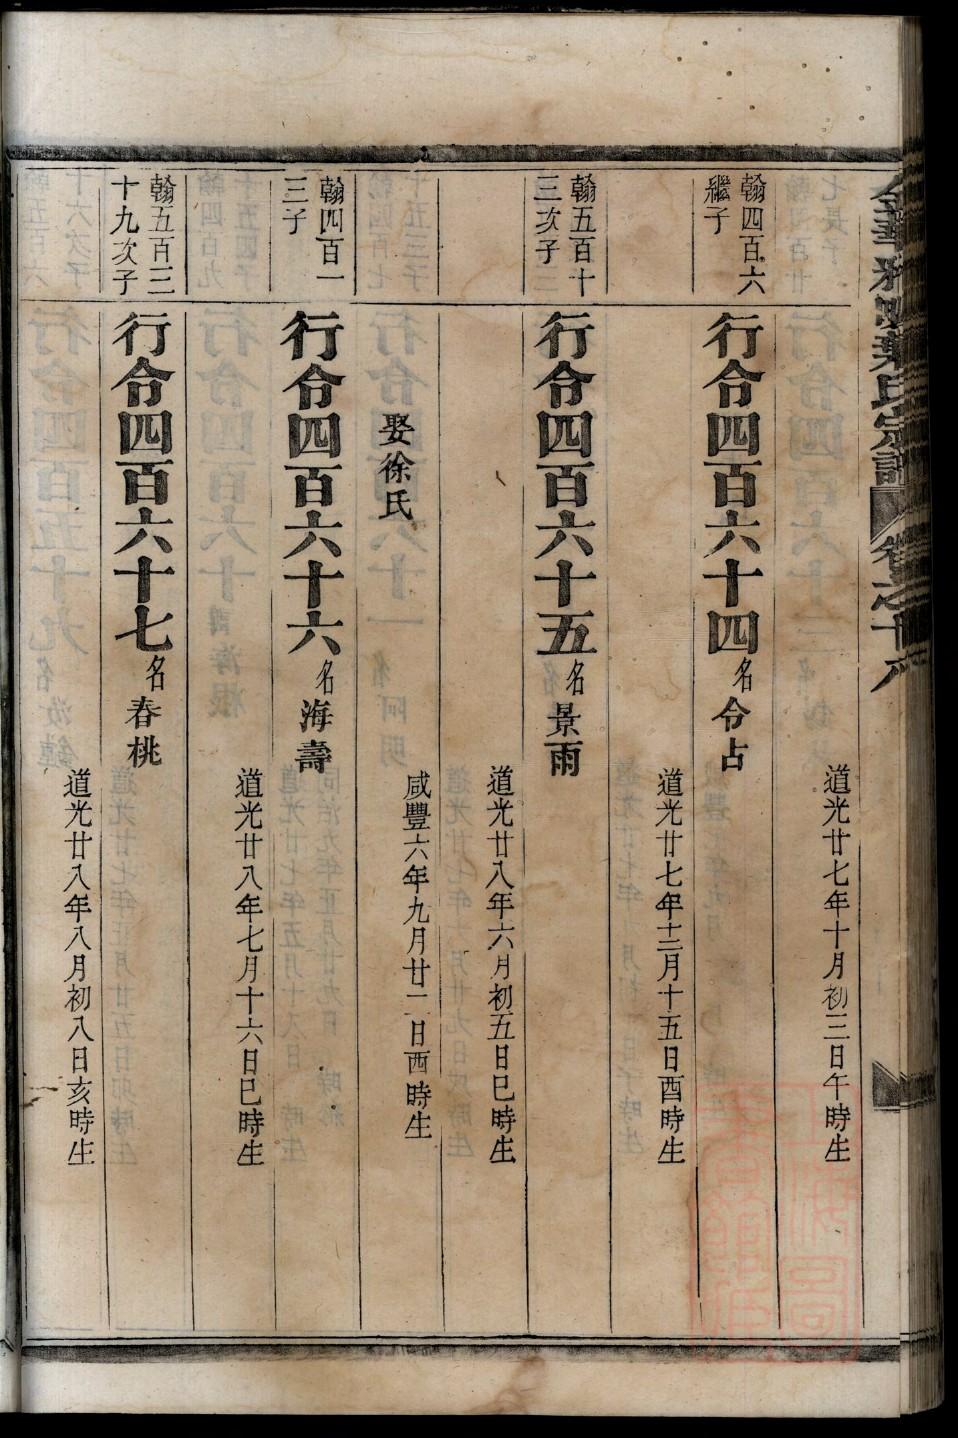 道光廿七年十月初三日午時生
翰四百六
繼子
行令四百六十四名令占
道光廿七年十二月十五日酉時生
翰五百十
三次子
行令四百六十五名景雨
道光廿八年六月初五日巳時生
娶徐氏
咸豐六年九月廿二日酉時生
翰四百一
三子
行令四百六十六名海壽
道光廿八年七月十六日巳時生
翰五百三
十九次子
行令四百六十七名春桃
道光廿八年八月初八日亥時生